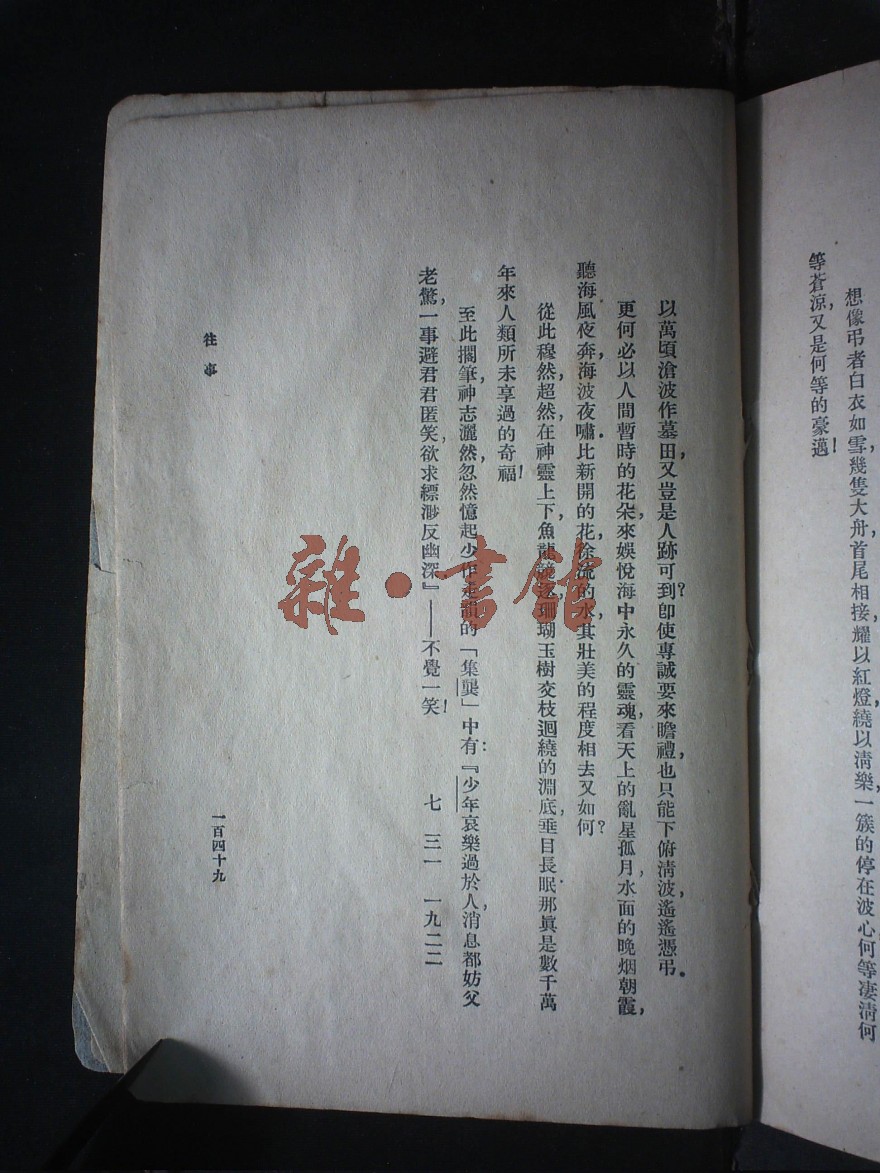 想像弔者白衣如雪,幾隻大舟,首尾相接,耀以紅燈,繞以清樂,一簇的停在波心何等凄清何
等蒼涼,又是何等的豪邁!
以萬頃滄波作墓田,又豈是人跡可到?即使專誠要來瞻禮,也只能下俯清波,遙遙憑弔.
更何必以人間暫時的花朵,來娛悅海中永久的靈魂,看天上的亂星孤月,水面的晚烟朝霞,
聽海風夜奔,海波夜嘯.比新開的花,徐流的水,其壯美的程度相去又如何?
從此穆然,超然,在神靈上下,魚龍競逐,珊瑚玉樹交枝迴繞的淵底,垂目長眠.那眞是數千萬
年來人類所未享過的奇福!
至此擱筆,神志灑然,忽然憶起少作走韻的「集龔」中有:『少年哀樂過於人,消息都妨父
老驚,一事避君君匿笑,欲求縹渺反幽深』——不覺一笑!
七 三一 一九二二
往事
一百四十九
雜·書館